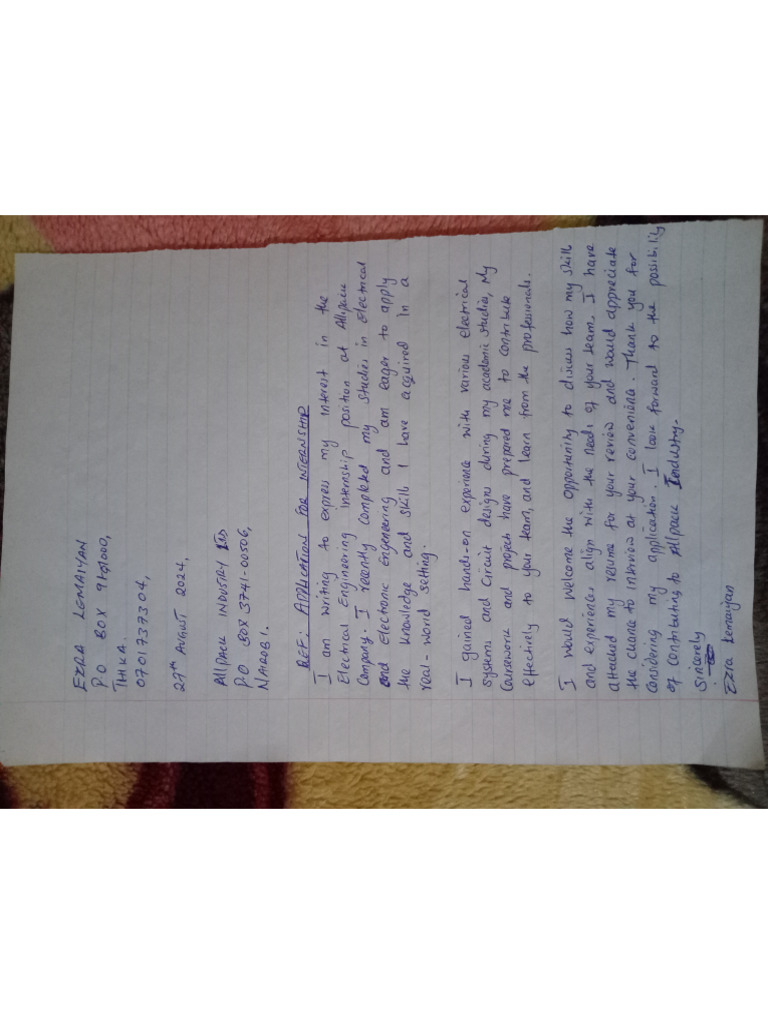 EZRA LEMAIYAN
P.O BOX
THIKA.
0701737304,
27th AUGUST 2024,
Allpack INDUSTRY LTD
P.O BOX 3741-00506,
NAIROBI.
REF: APPLICATIONS FOR INTERNSHIP
I am writing to express my interest in the
Electrical Engineering internship position at Allpack
Company. I recently completed my studies in Electrical
and Electronic Engeneering and am eager to apply
the knowledge and skill I have acquired in a
real-world setting.
I gained hands-on experience with various electrical
systems and Circuit designs during my academic studies, My
Coursework and project have prepared me to contribute
effectively to your team, and learn from the professionals.
I would welcome the opportunity to discuss how my skill
and experiences align with the needs of your team. I have
attached my resume for your review and would appreciate
the chance to interview at your convenience. Thank you for
considering my application. I look forward to the possibility
of contributing to Allpack Industry.
Sincerely
Ezra Lemaiyan